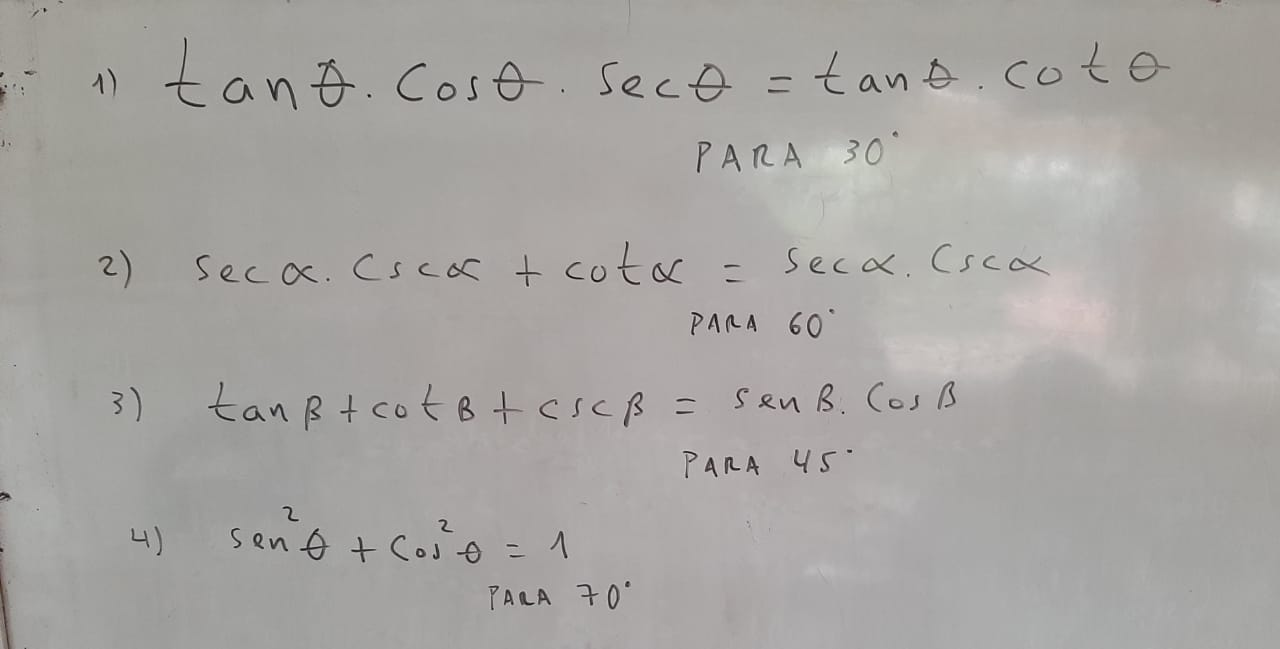 1) tanθ. Cosθ. Secθ = tanθ. cotθ
PARA 30°
2) Secα. Cscα + cotα = Secα. Cscα
PARA 60°
3) tanβ + cotβ + cscβ = senβ. Cosβ
PARA 45°
4) sen²θ + Cos²θ = 1
PARA 70°